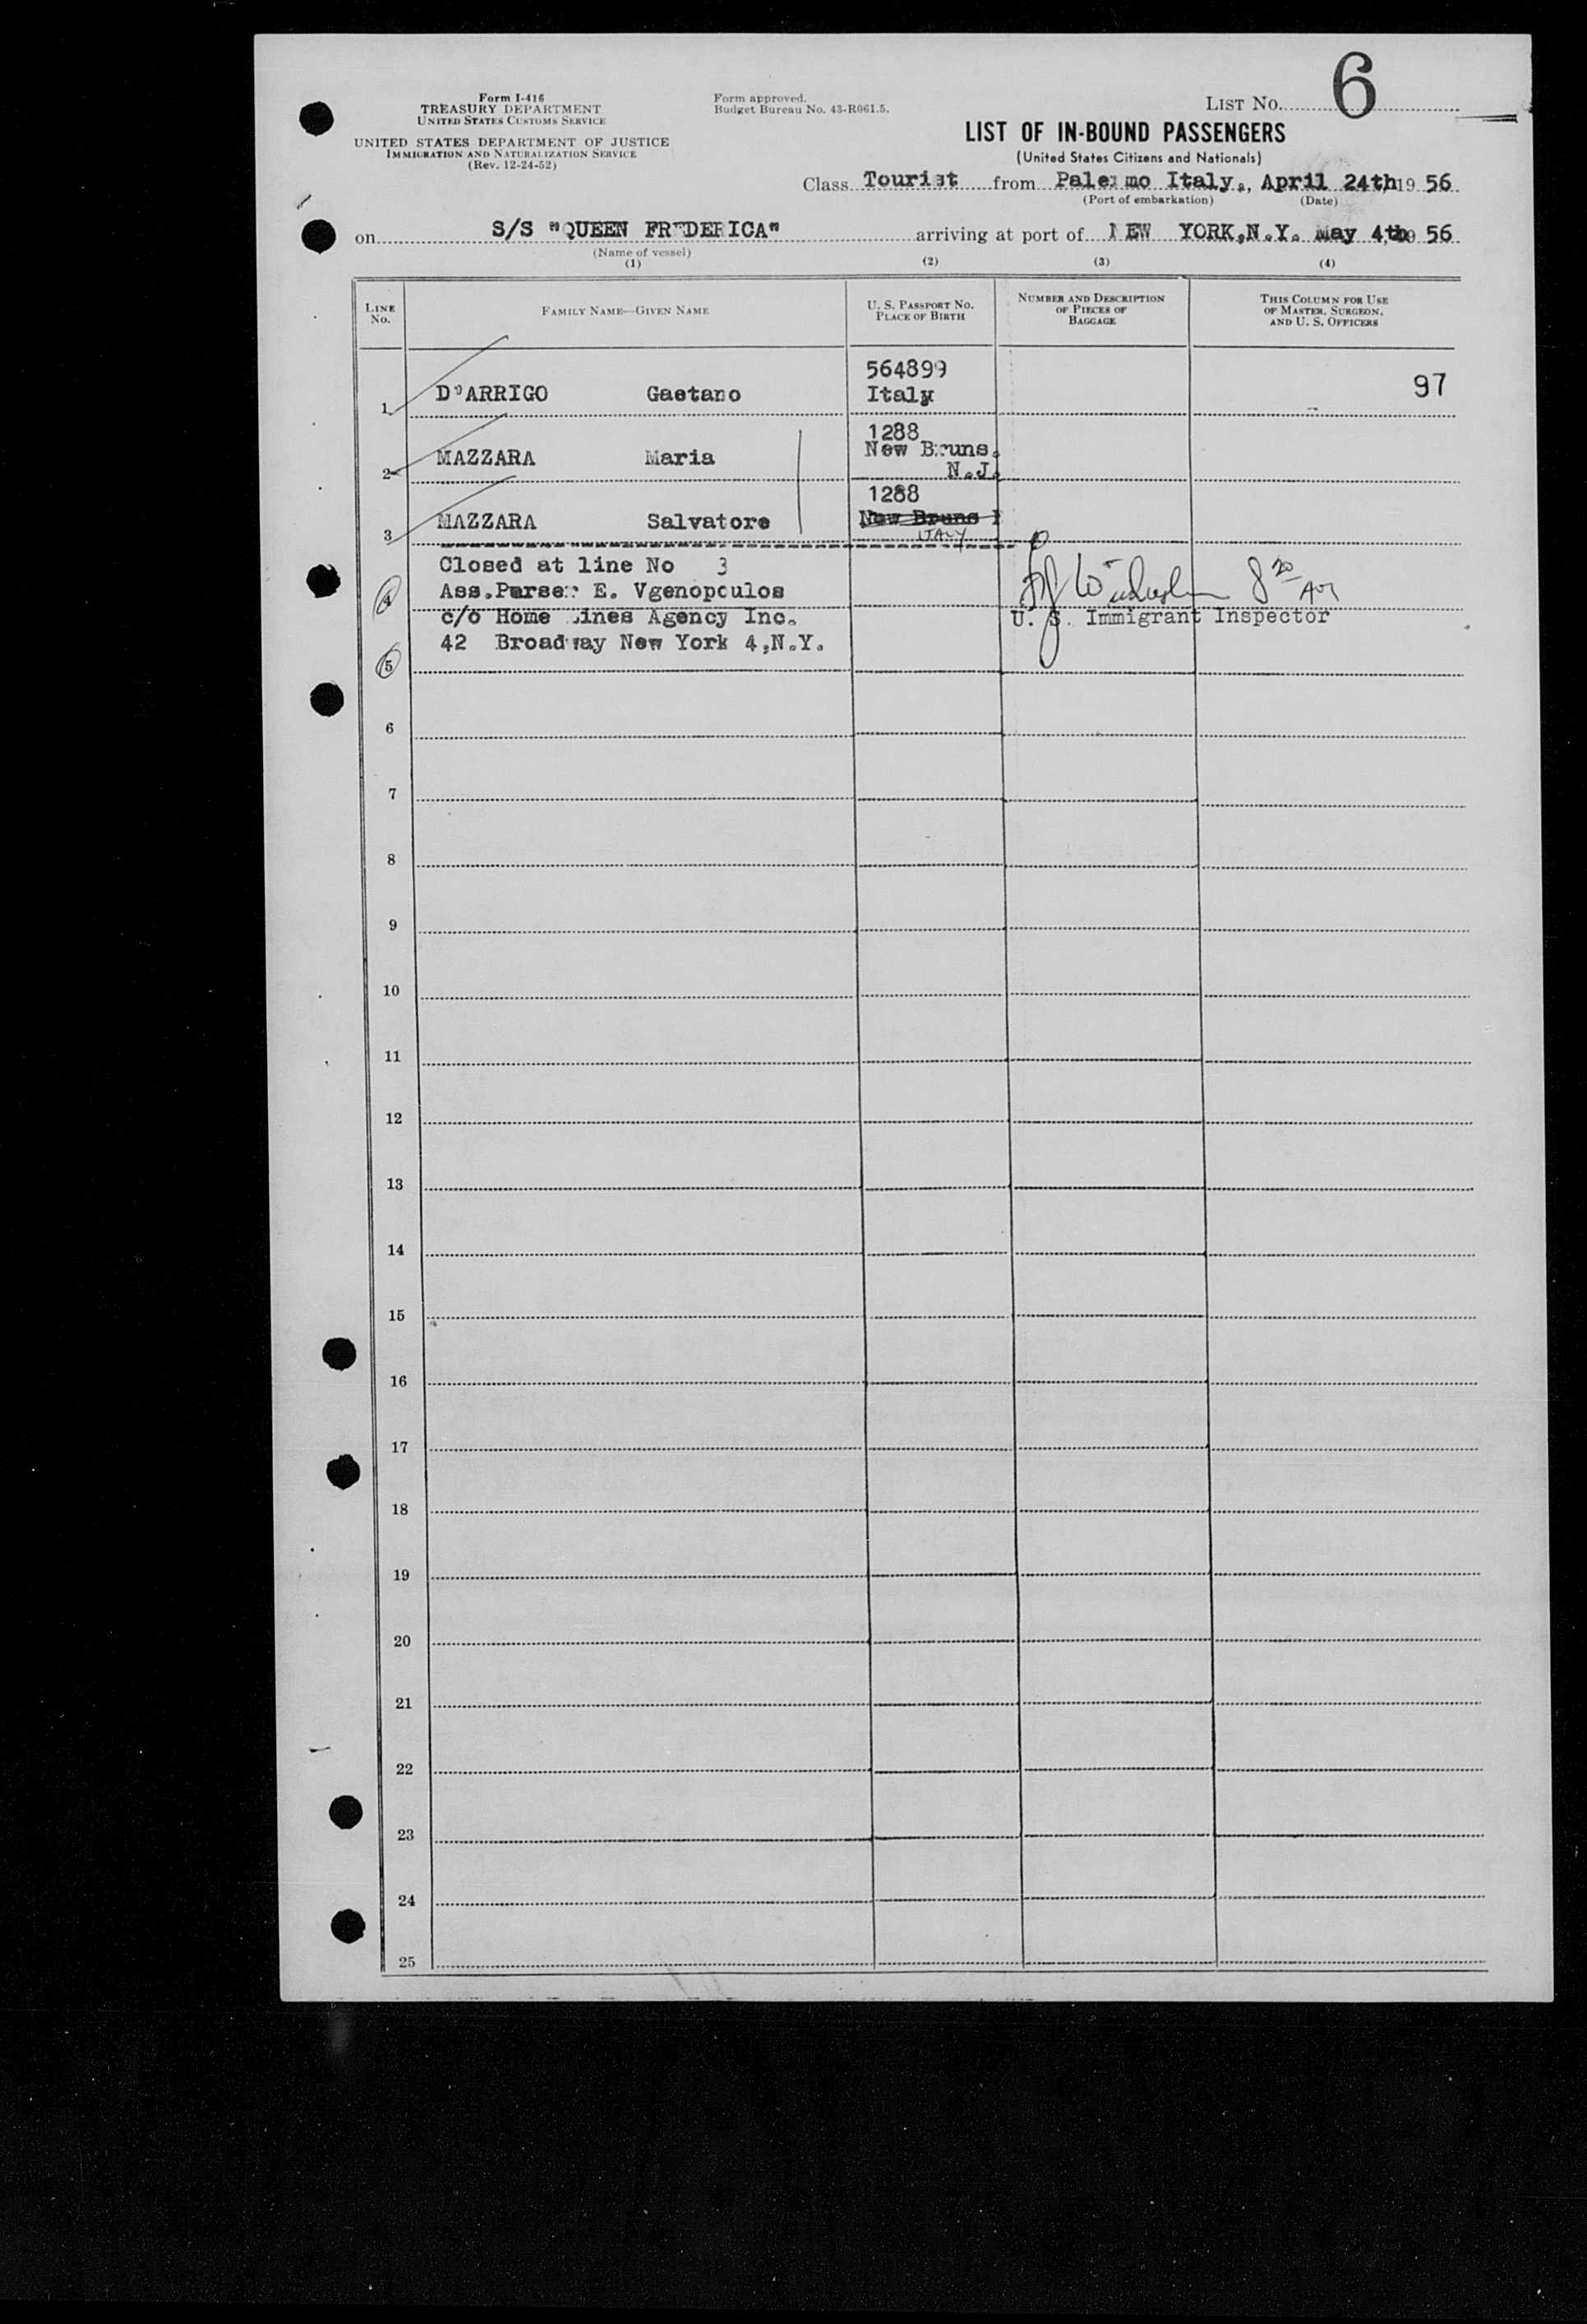 Form I-416
TREASURY DEPARTMENT
UNITED STATES CUSTOMS SERVICE
UNITED STATES DEPARTMENT OF JUSTICE
IMMIGRATION AND NATURALIZATION SERVICE
(Rev. 12-24-52)
Form approved.
Budget Bureau No. 43-R061.5.
LIST No. 6
LIST OF IN-BOUND PASSENGERS
(United States Citizens and Nationals)
Class Tourist from Palermo Italy., April 24th 19 56
(Port of embarkation) (Date)
on S/S "QUEEN FREDERICA" arriving at port of NEW YORK,N.Y. May 4,th 56
(Name of vessel)
(1) (2) (3) (4)
LINE No. FAMILY NAME—GIVEN NAME U. S. PASSPORT No. PLACE OF BIRTH NUMBER AND DESCRIPTION OF PIECES OF BAGGAGE THIS COLUMN FOR USE OF MASTER, SURGEON, AND U. S. OFFICERS
564899
1 D'ARRIGO Gaetano Italy 97
1288
2 MAZZARA Maria New Bruns.
N.J.
1288
3 MAZZARA Salvatore New Bruns
ITALY
Closed at line No 3
4 Ass.Purser E. Vgenopoulos 8 20 AM
c/o Home Lines Agency Inc. U. S. Immigrant Inspector
42 Broadway New York 4,N.Y.
5
6
7
8
9
10
11
12
13
14
15
16
17
18
19
20
21
22
23
24
25